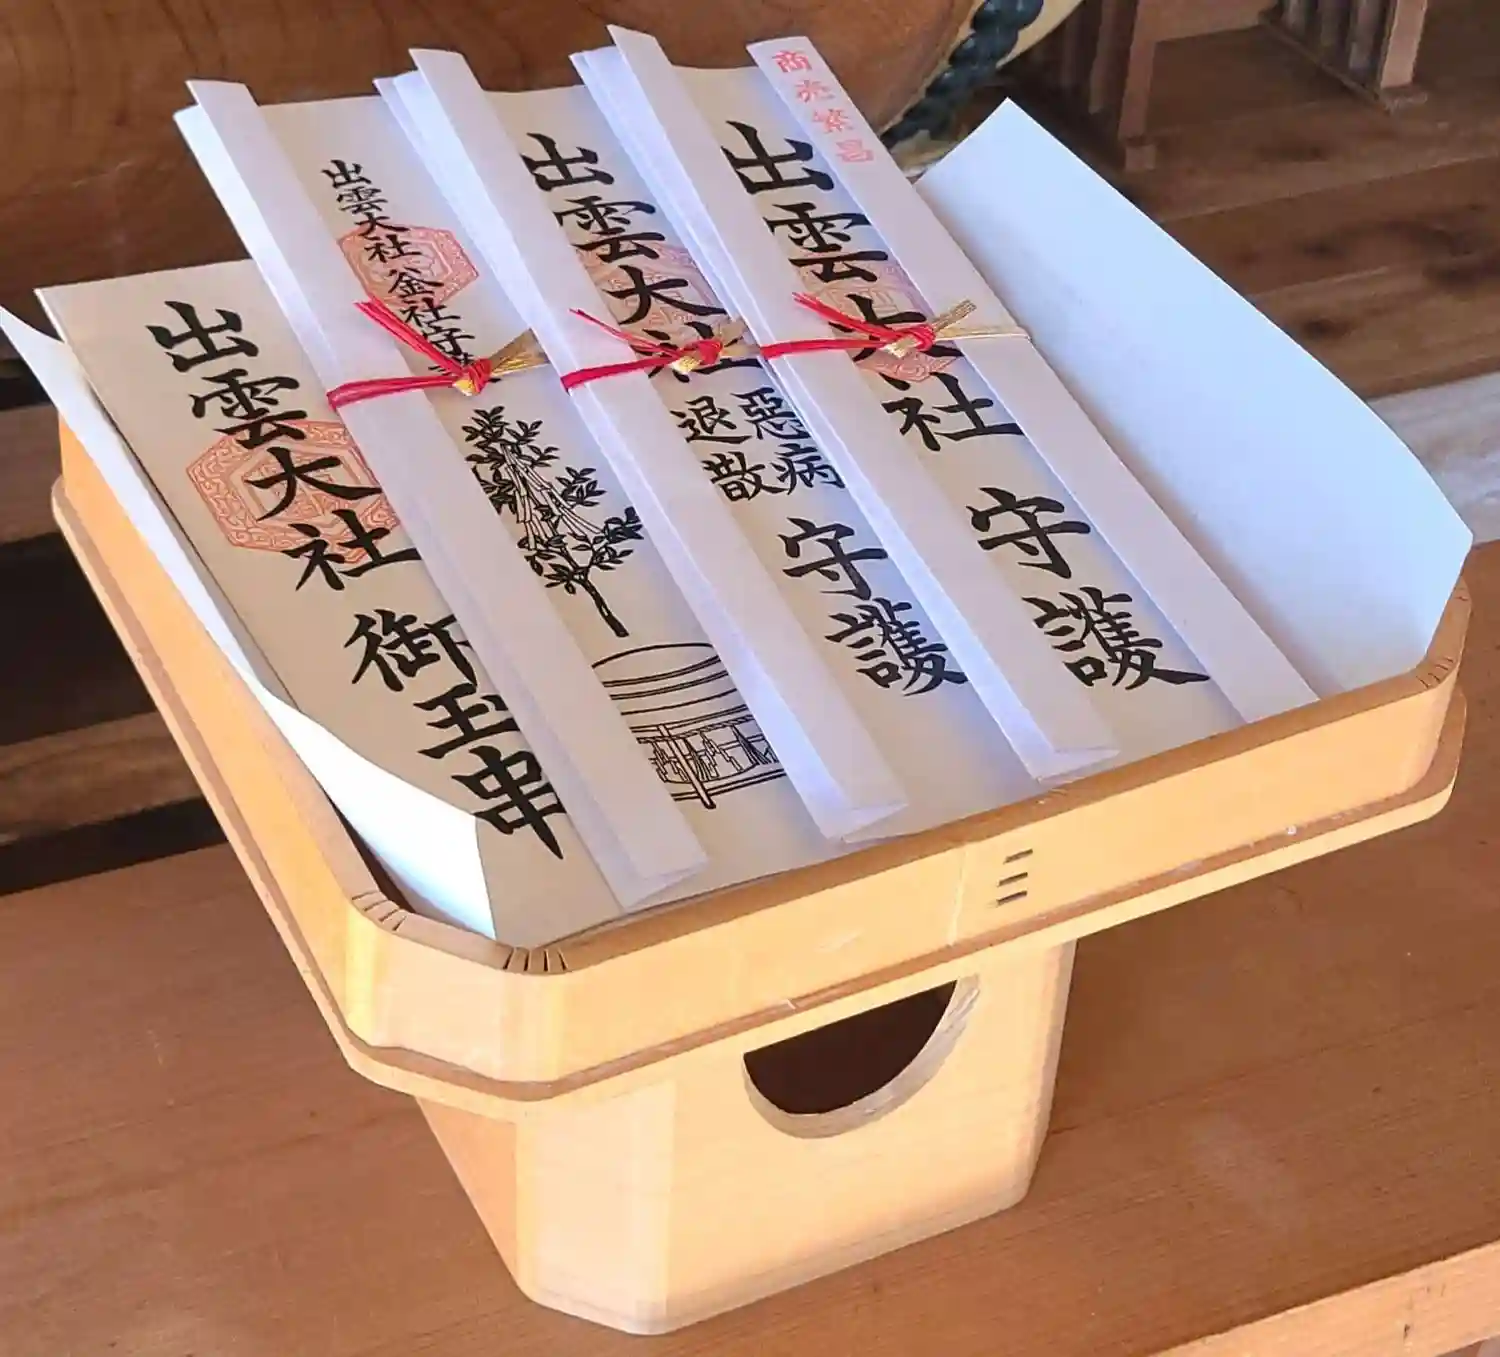 商売繁昌
出雲大社 守護
出雲大社
惡病
退散
守護
出雲大社 釜社守護
出雲大社 御玉串